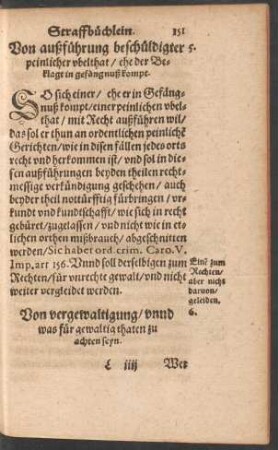 Straffbüchlein. 151
Von außführung beschüldigter 5.
peinlicher vbelthat / ehe der Be-
klagt in gefängnuß kompt.
SO sich einer / ehe er in Gefäng-
nuß kompt / einer peinlichen vbel-
that / mit Recht außführen wil /
das sol er thun an ordentlichen peinlichẽ
Gerichten / wie in disen fällen jedes orts
recht vnd herkommen ist / vnd sol in die-
sen außführungen beyden theilen recht-
messige verkündigung geschehen / auch
beyder theil notturfftig fürbringen / vr-
kundt vnd kundtschafft / wie sich in recht
gebüret / zugelassen / vnd nicht wie in et-
lichen orthen mißbrauch / abgeschnitten
werden / Sic habet ord. crim. Caro. V.
Imp. art 156. Vnnd soll derselbigen zum
Rechten / für vnrechte gewalt / vnd nicht
weiter vergleidet werden.
Einẽ zum
Rechten /
aber nicht
daruon /
geleiden.
Von vergewaltigung / vnnd 6.
was für gewaltig thaten zu
achten seyn.
L iiij Wer